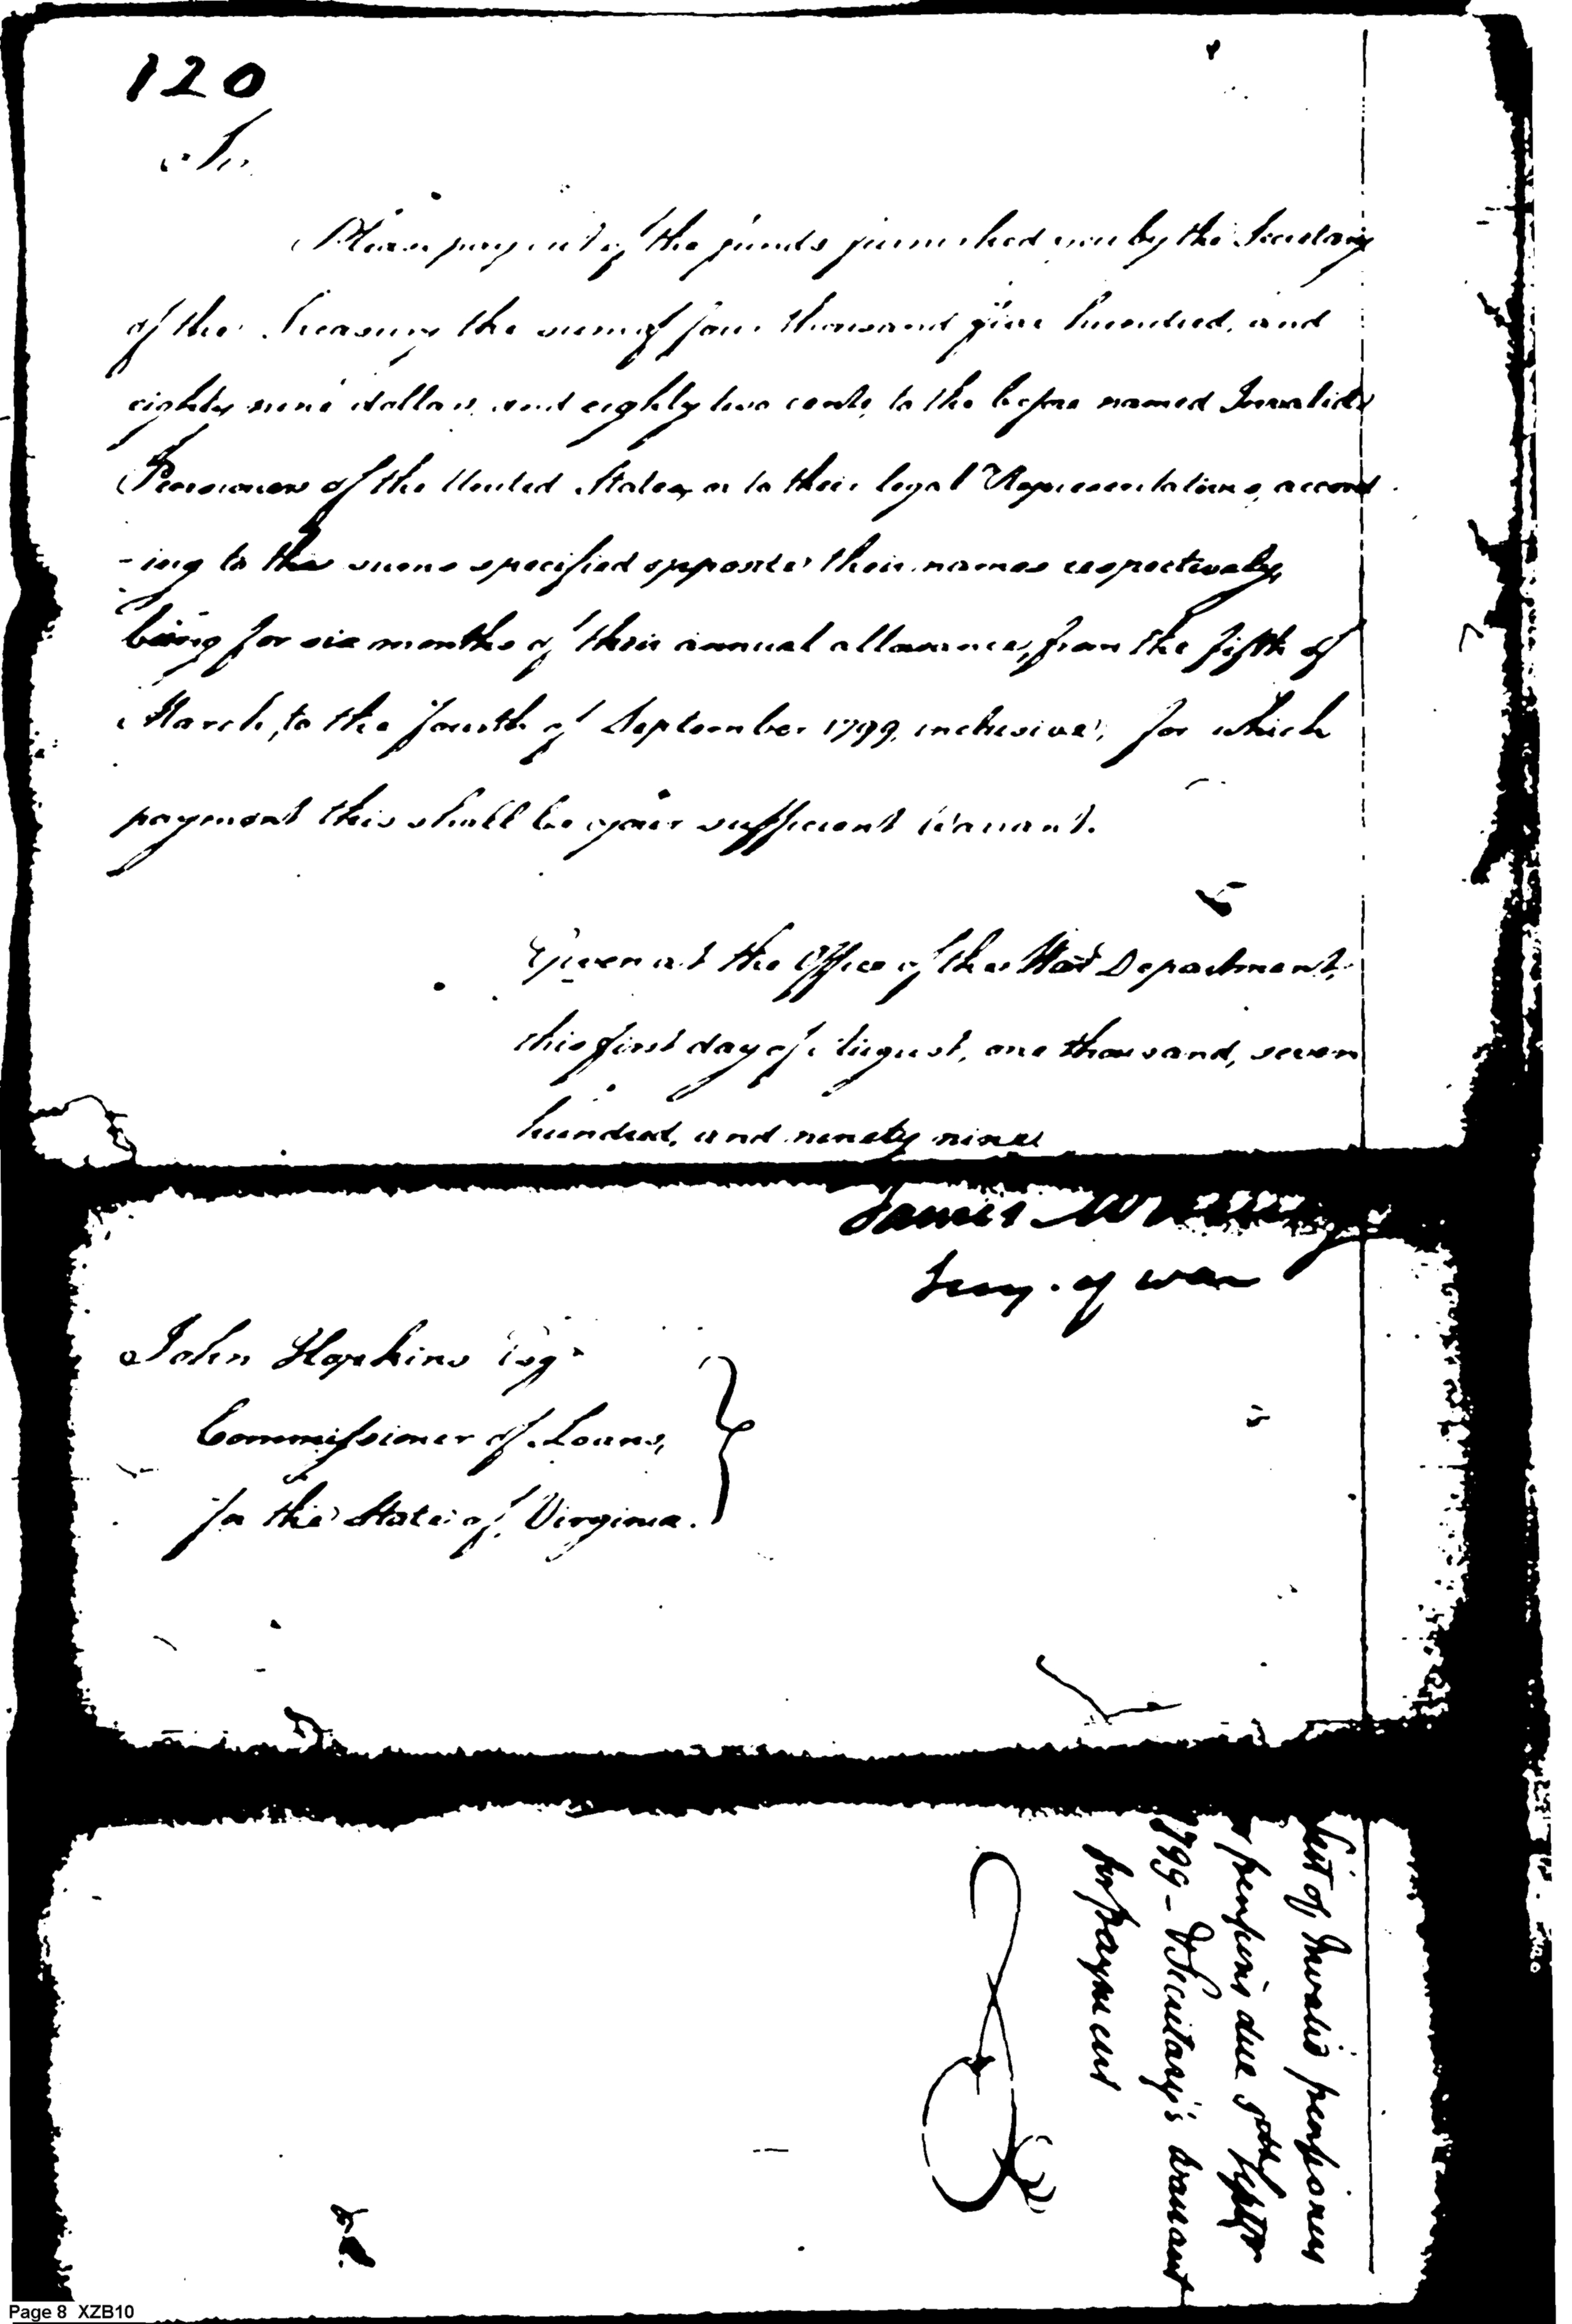 120
Sir
Please pay out of the funds furnished you by the Secretary
of the Treasury the sum of four thousand five hundred, and
eighty nine dollars and eighty two cents, to the before named Invalid
Pensioners of the United States, or to their legal Representatives, accord
-ing to the sums specified opposite their names respectively,
being for six months of their annual allowance, from the fifth of
March, to the fourth of September 1799, inclusive, for which
payment this shall be your sufficient Warrant.
Given at the Office of the War Department,
this first day of August, one thousand, seven
hundred, and ninety nine
James
Secy. of war
John Hopkins Esqr
Commissioner of Loans,
for the State of Virginia.
List of Invalid pensioners
& pensions due
1799 - & Secretary's warrant
for payment
Page 8 XZB10